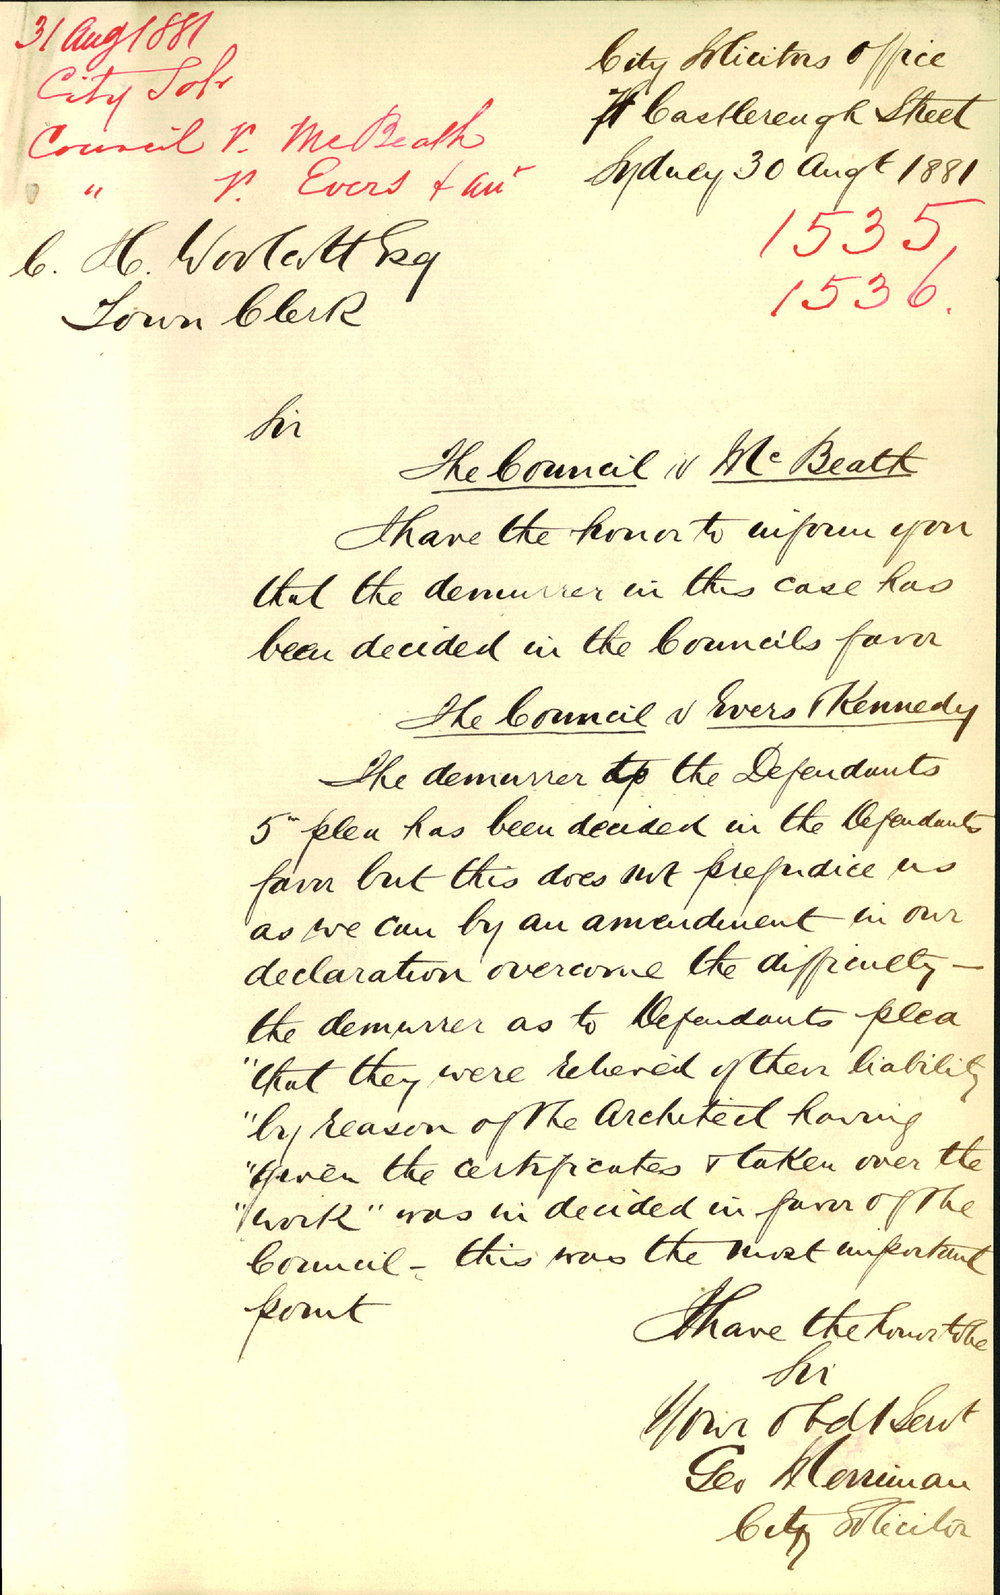 31 Aug 1881
City Solr
Council V. McBeath
" V. Evers & anr
City Solicitors Office
Castlereagh Street
Sydney 30 Augt 1881
1535,
1536.
C. H. Woolcott Esq
Town Clerk
Sir
The Council v Mc Beath
I have the honor to inform you
that the demurrer in this case has
been decided in the Councils favor
The Council v Evers & Kennedy
The demurrer to the Defendants
5th plea has been decided in the Defendants
favor but this does not prejudice us
as we can by an amendment in our
declaration overcome the difficulty —
the demurrer as to Defendants plea
"that they were relieved of their liability
"by reason of the Architect having
"given the certificates & taken over the
"work" was in decided in favor of the
Council – this was the most important
point
I have the honor to be
Sir
Your obdt Servt
Geo Merriman
City Solicitor